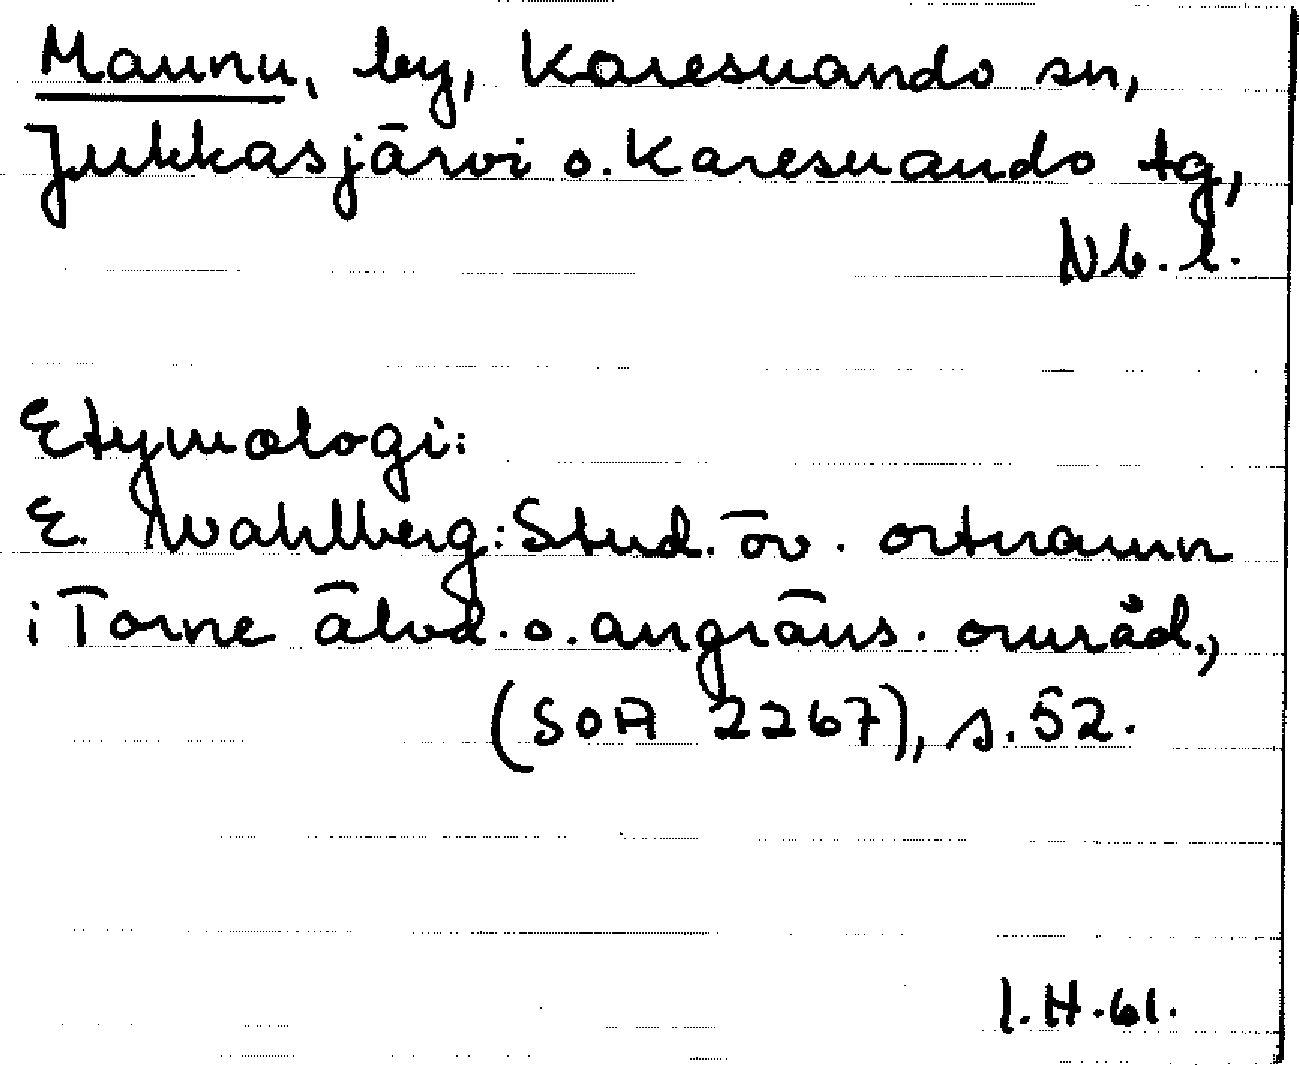 Maunu, by, Karesuando sn,
Jukkasjärvi o. Karesuando tg,
Nb. l.
Etymologi:
E. Wahlberg: Stud. öv. ortnamn
i Torne älvd. o. angräns. områd.,
(SOA 2267), s. 52.
I.H.61.